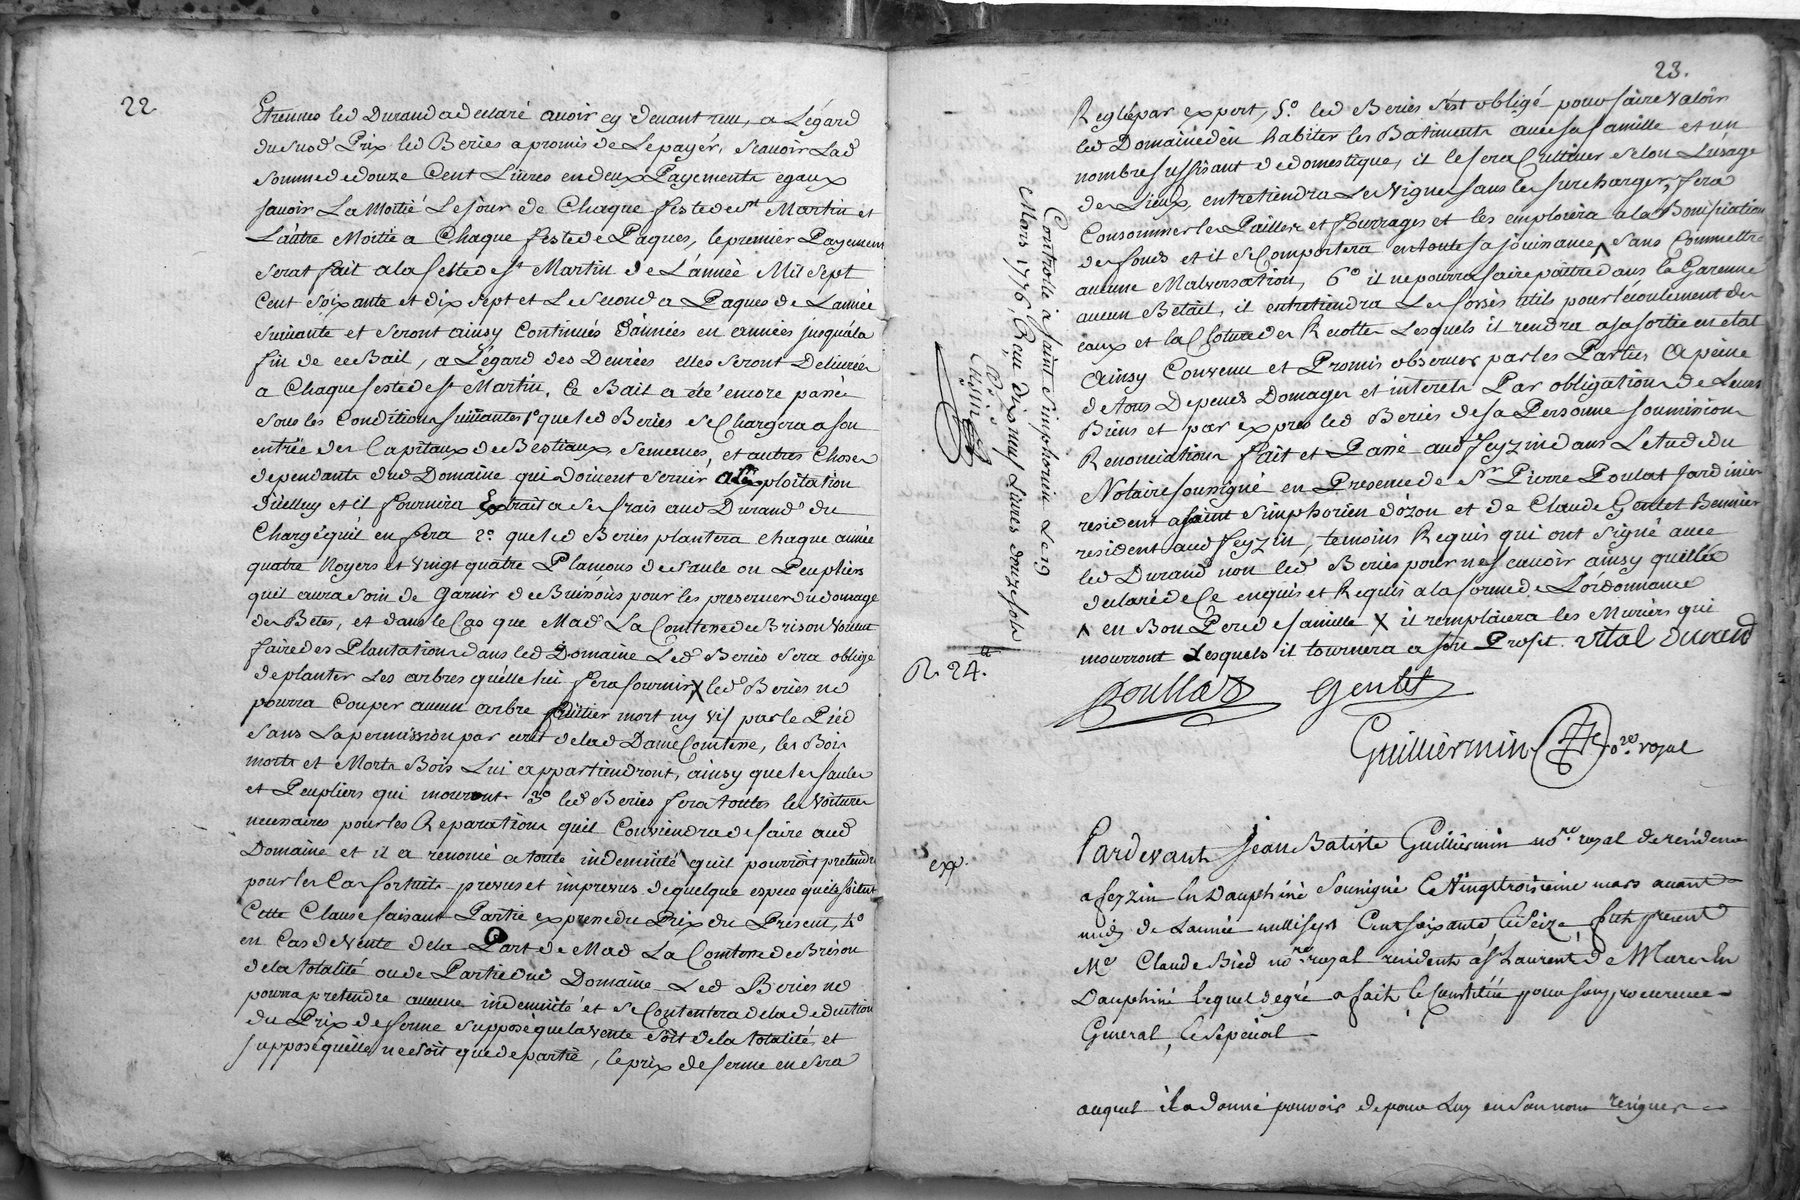 22
Etrennes led Durand a declaré avoir cy devant reçu, a Légard
du susd' Prix led Beries a promis de Le payér, Scavoir Lad
somme de douze Cent Livres en deux Payements egaux
savoir La Moitié Le jour de Chaque feste de st Martin et
Lautre Moitié a Chaque feste de Paques, le premier Payement
serat fait a la feste de st Martin de L'année Mil Sept
Cent Soixante et dix sept et Le Second a Paques de L'année
suivante et seront ainsy Continués d'années en années jusqua la
fin de ce Bail, a Légard des Denrées elles seront Delivrées
a Chaque feste de st Martin. Ce Bail a été encore passé
sous les Conditions suivantes 1º que led Beries se Chargera a son
entrée des Capitaux de Bestiaux, Semences, et autres Choses
dependants dud Domaine qui doivent servir a Lexploitation
d'icelluy et il fournira Extrait a ses frais aud Durand du
Chargé qu'il en fera 2º que led Beries plantera chaque année
quatre Noyers et vingt quatre Plansons de Saule ou Peupliers
quil aura soin de Garnir de Buissons pour les preserver du domage
des Bétes, et dans le Cas que Mad' La Comtesse de Brison voulut
faire des Plantations dans led Domaine Led Beries sera obligé
de planter Les arbres quélle lui fera fournir X led Beries ne
pourra Couper aucun arbre fruitier mort ny vif par le Pied
Sans La permission par ecrit de lad Dame Comtesse, les Bois
morts et Morts Bois Lui appartiendront, ainsy que les saules
et Peupliers qui mouront 3º led Beries fera toutes les Voitures
necessaires pour les Reparations quil Conviendra de faire aud
Domaine et il a renoncé a toute indemnité quil pourrait pretendre
pour les Cas fortuits prevus et imprevus de quelque espece quils soient
Cette Clause faisant Partie expresse du Prix du Présent, 4º
en Cas de Vente de la Part de Mad La Comtesse de Brison
de la totalité ou de Partie dud Domaine Led Beries ne
pourra pretendre aucune indemnité et se Contentera de la deduction
du Prix de ferme supposé que la Vente soit de la totalité, et
supposé quélle ne soit que de partie, le prix de ferme en sera
23.
Reglé par expert, 5º led Beries s'est obligé pour faire valoir
led Domaine d'en habiter les Batiments avec sa famille et un
nombre suffisant de domestique, il le fera Cultiver selon Lusage
des Lieux, entretiendra Les Vignes sans les surcharger, fera
Consommer les Pailles et fourrages et les emploiera a la Bonification
des fonds et il se Comportera en toute sa jouissance ʌ sans Commettre
aucune Malversation, 6º il ne pourra faire paître dans la Garenne
aucun Bétail, il entretiendra Les fossés utils pour l'écoulement des
eaux et la Cloture des Recottes Lesquels il rendra a sa sortie en etat
Ainsy Convenu et Promis observer par les Parties A peine
de tous Depends Domages et interets Par obligation de Leurs
Biens et par exprès led Beries de sa Personne soumissions
Renonciations fait et Passé aud feyzin dans L'etude du
Notaire soussigné en Presence de Sr Pierre Poulat Jardinier
resident a saint Simphorien d'ozon et de Claude Gentet Bennier
resident aud feyzin, temoins Requis qui ont signé avec
led Durand non led Beries pour ne scavoir ainsy quil la
declaré de Ce enquis et Requis a la forme de L'ordonnance
ʌ en Bon Pere de famille X il remplacera les Muriers qui
mourront Lesquels il tournera a son Profit. vital durand
Poullat Gentet
Guilliermin nore royal
Controllé a saint Simphorien Le 19
Mars 1776, Reçu dix neuf Livres douze sols
R. 24.
exp.
Pardevant Jean Batiste Guilliermin nore royal de residence
a feyzin En Dauphiné Soussigné Ce Vingt troisieme mars avant
midy de L'année mil sept Cent soixante et seize fut present
Me Claude Bied nore royal resident a st Laurent de Mure En
Dauphiné lequel de gré a fait et Constitué pour son procureur
General, et special
auquel il a donné pouvoir de pour Luy en son nom resigner